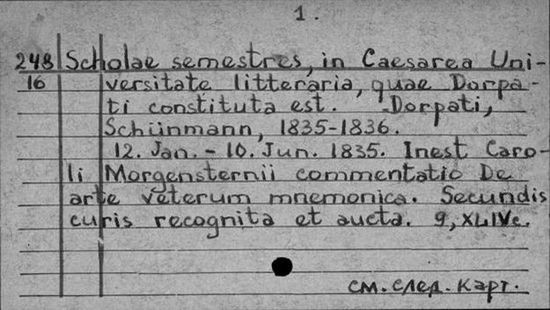 1.
248 Scholae semestres, in Caesarea Uni-
16 versitate litteraria, quae Dorpa-
ti constituta est. - Dorpati,
Schünmann, 1835-1836.
12. Jan. - 10. Jun. 1835. Inest Caro-
li Morgensternii commentatio De
arte veterum mnemonica. Secundis
curis recognita et aucta. 9, XLIVc.
см. след. карт.